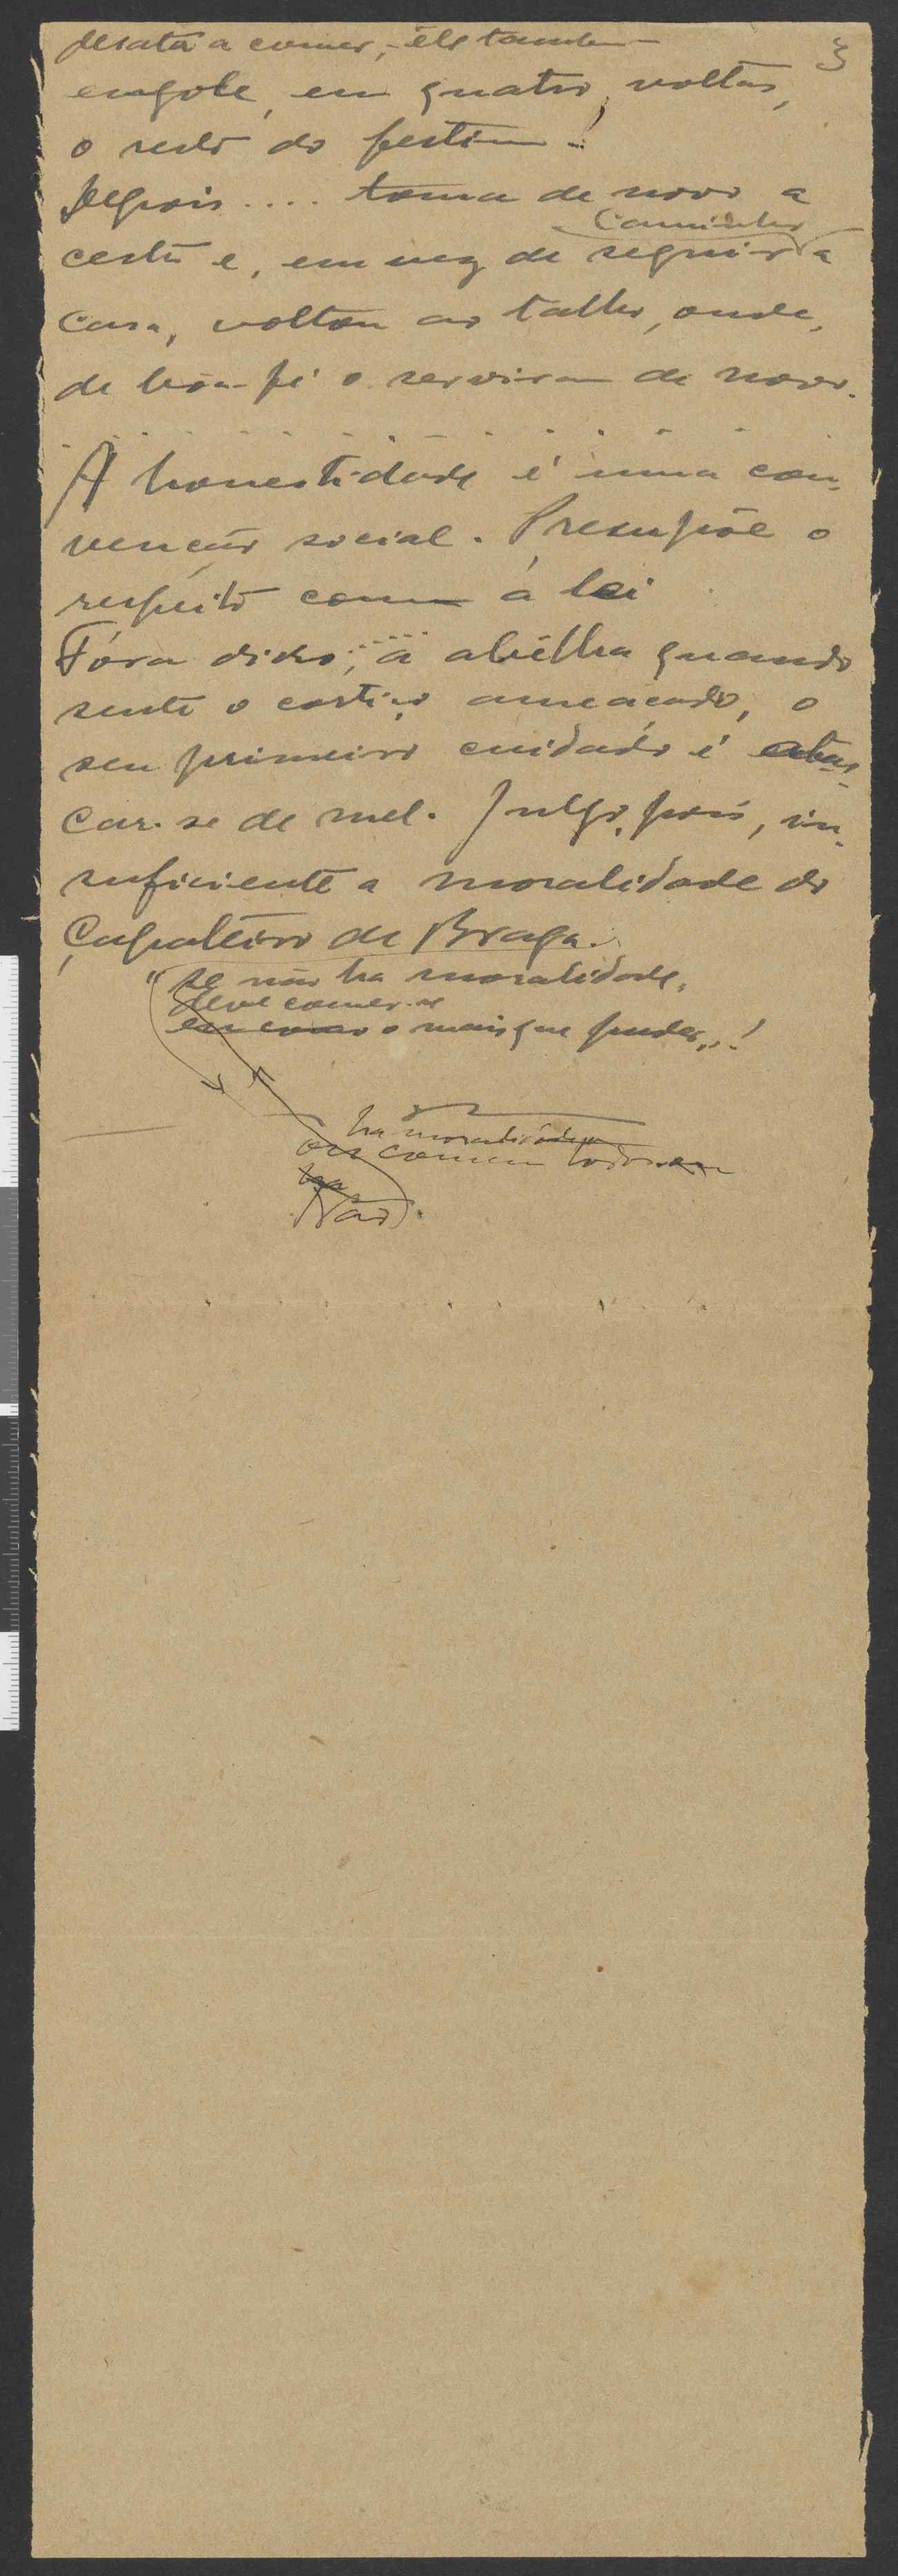 3
desata a comer, - êle tambem
engole, em quatro voltas,
o resto do festim!
Depois.... toma de novo a
caminho
cesta e, em vez de seguir a
casa, voltou ao talho, onde,
de bôa-fé o serviram de novo.
. . . . . . . . . . . . .
A honestidade é uma con-
venção social. Presupõe o
respeito comum á lei
Fóra disso, .... a abêlha quando
sente o cortiço ameaçado, o
seu primeiro cuidado é abas-
car-se de mel. Julgo, pois, in-
suficiente a moralidade do
Çapateiro de Braga.
"se não ha moralidade,
deve comer-se
eu como o mais que puder,,!
ha moralidade
ou comem todos
ha
Não